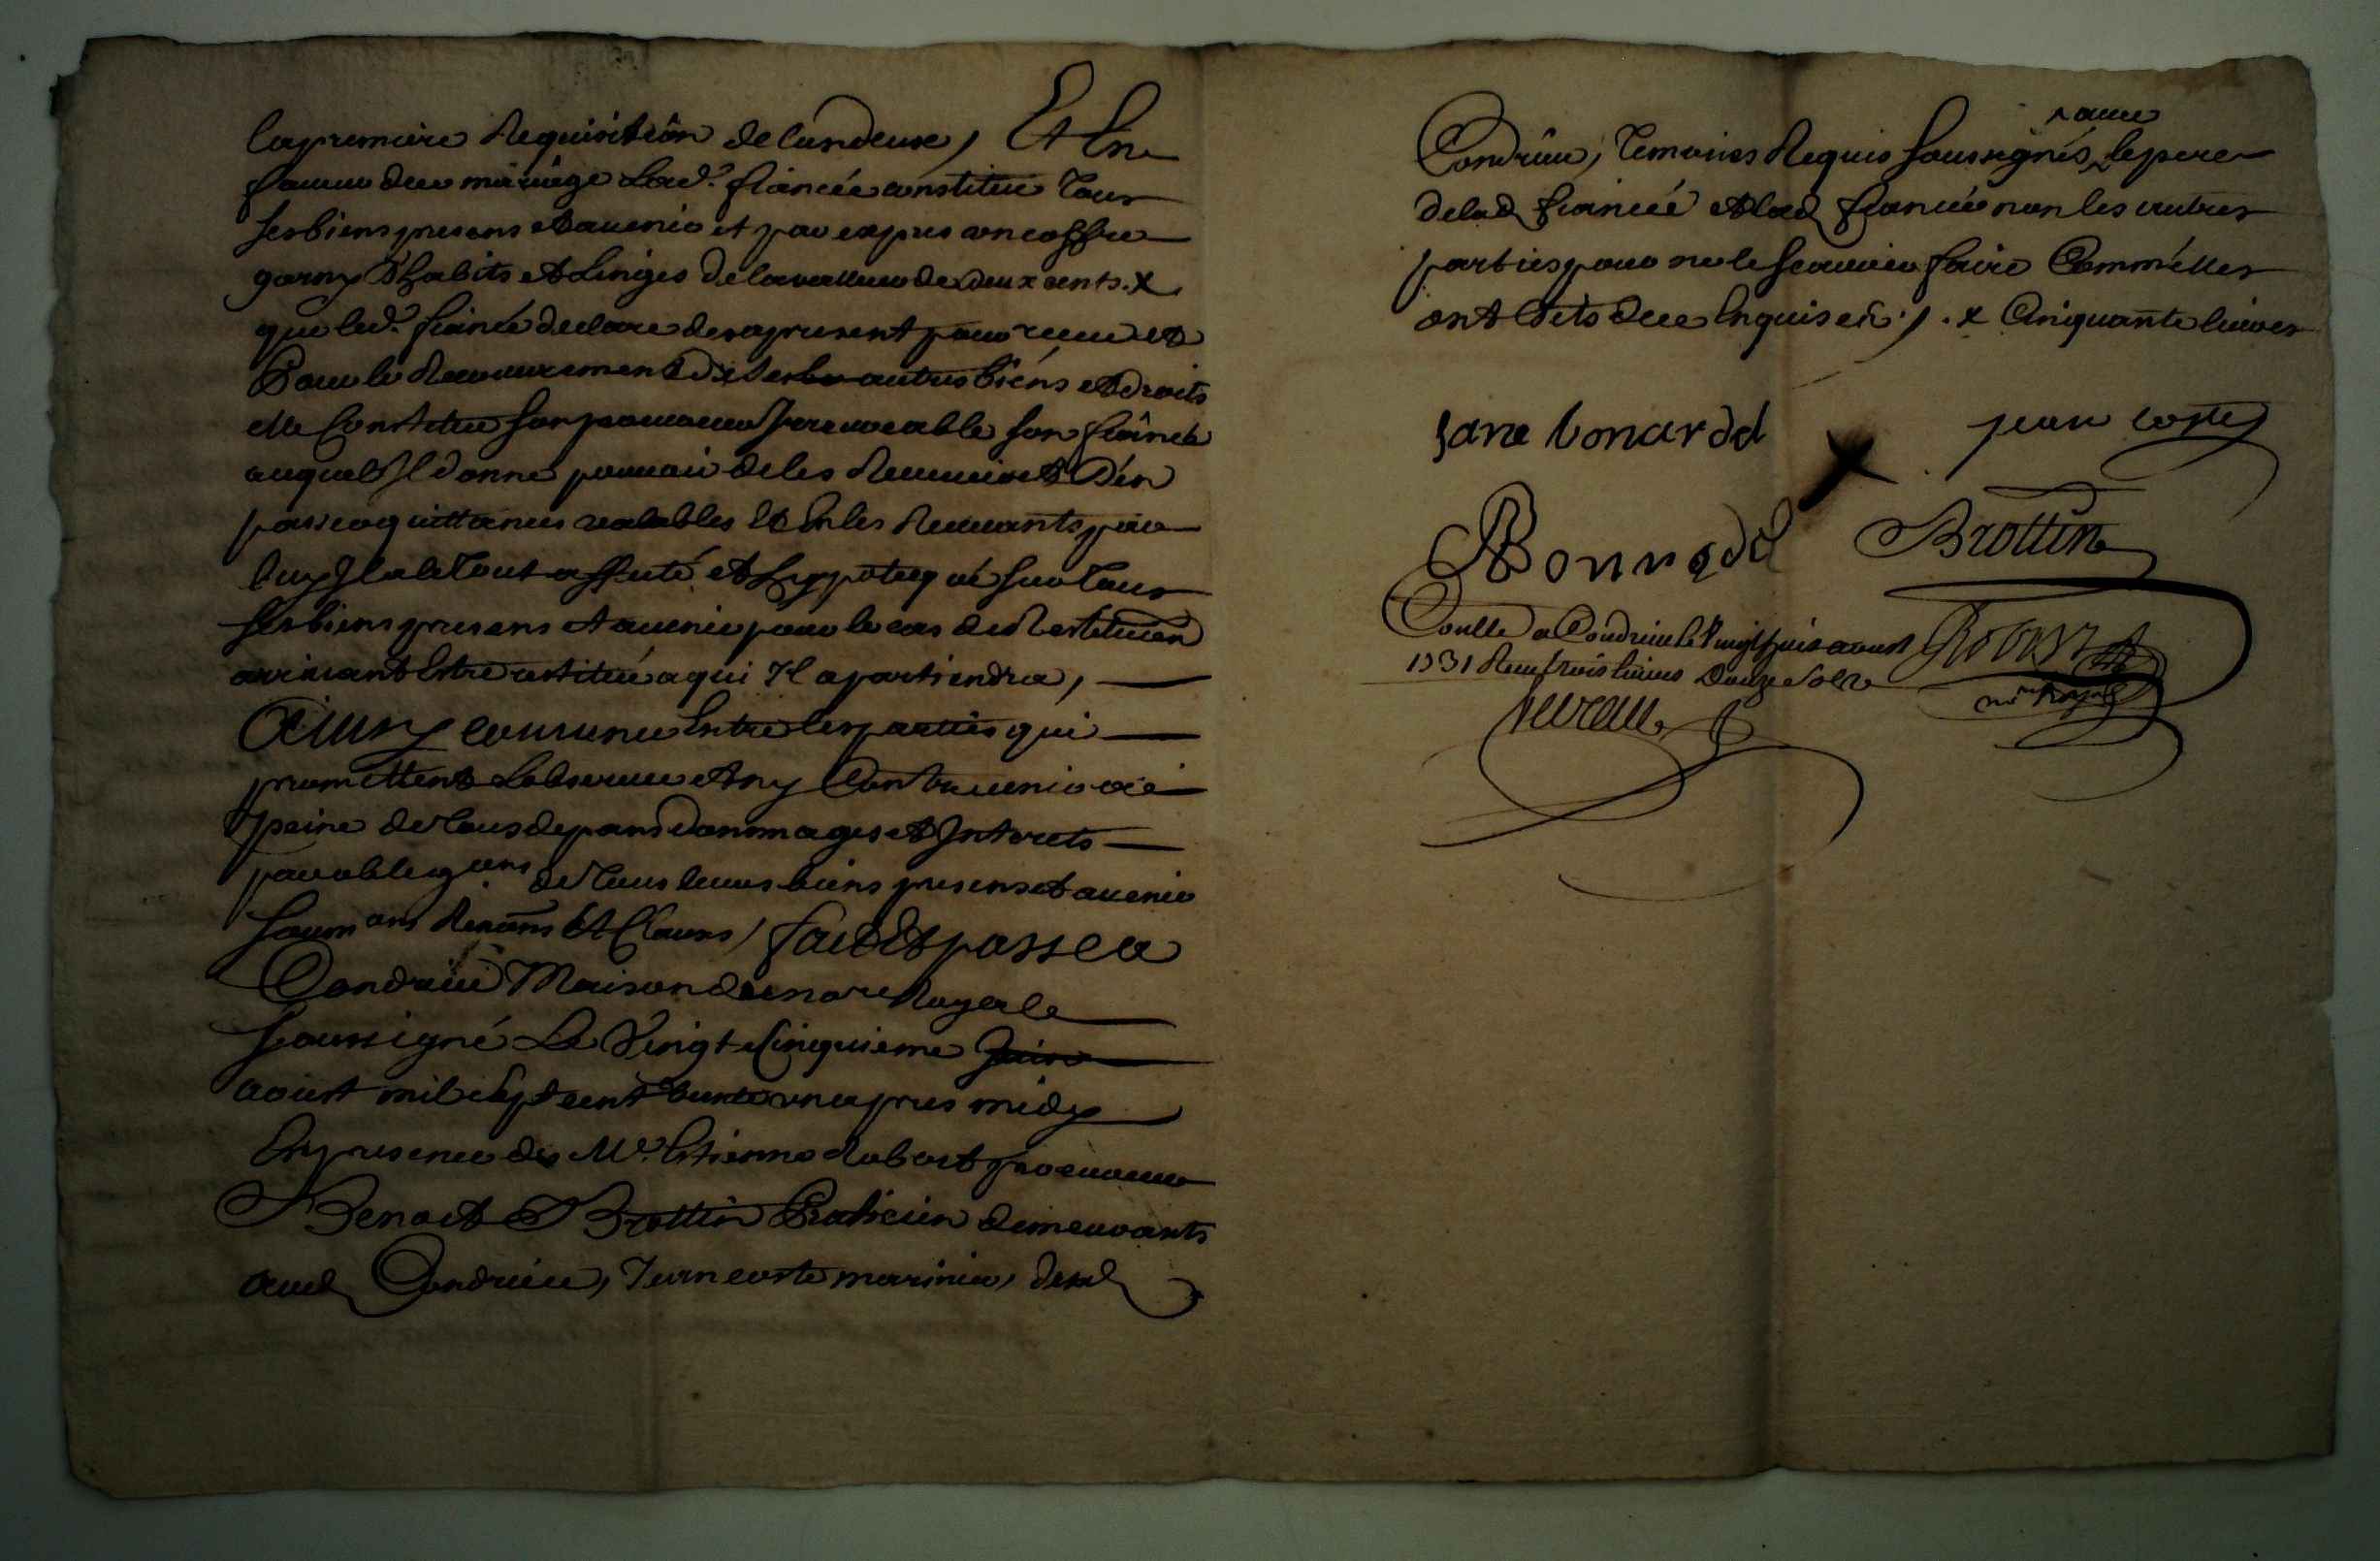 la premiere Requisition de lun deux, Et En
faveur du mariage Lad.e fiancée constitue Tous
ses biens presens et avenir et par expres un coffre
garny D'habits et Linges de la valleur de deux cents x
que led.t fiancé declare des a present pour receu et
Pour le Recouvrement de ses autres biens et droits
elle Constitue son procureur Irrevocable son fiancé
auquel Il donne pouvoir de les Recevoir et D'en
passer quittances valables Et En les Recevants par
luy Il a le Tout assuré et hypotequé sur Tous
ses biens presens et avenir pour le cas de Restitution
arrivant Estre restitué a qui Il apartiendra,
Ainsy convenu Entre les parties qui
promettent Lobserver et ny Contrevenir a
peine de tous depans dommages et Interets
par obligaons de Tous leurs biens presens et avenir
soumons Renons Et Clauses, fait Et passé a
Condrieu Maison du nore Royal le
soussigné Le Vingt Cinquieme Juin
aoust mil sept cent trente un apres midy
En presence de M.e Estienne Robert procureur
Benoit Brottin Praticien demeurants
aud Condrieu, Jean coste marinier, dud
Condrieu, Temoins Requis soussignés, le pere
de lad fiancée et lad fiancée non les autres
parties pour ne le scavoir faire Comme elles
ont dits de ce Enquises, . x Cinquante livres
Jane bonardel
jean coste
Bonnardel
Brottin
Conllé a Condrieu le Vingt huit aoust
1731 Reçu trois livres Douze Sols
Robert
nre Royal